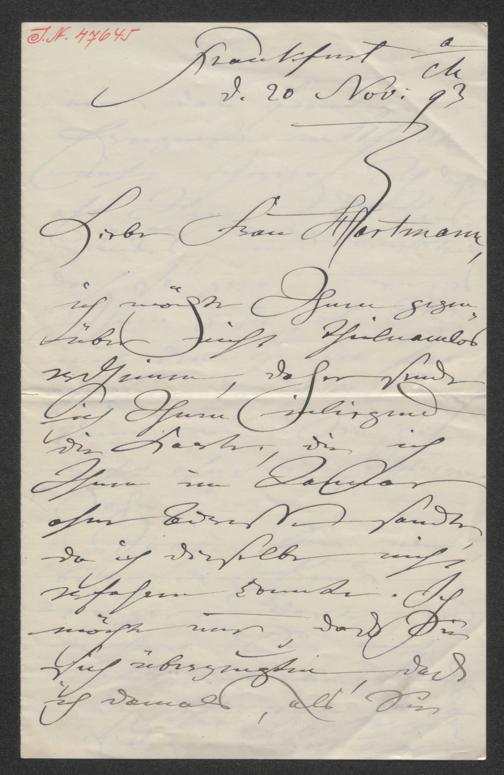 J.N. 47645
Frankfurt a/M
d. 20 Nov: 93
Liebe Frau Hartmann,
ich möchte Ihnen gegen-
über nicht theilnamlos
erscheinen, daher sende
ich Ihnen inliegend
die Karte, die ich
Ihnen im Januar
ohne Adresse sandte,
da ich dieselbe nicht
erfahren konnte. Ich
möchte nur, daß Sie
sich überzeugten, daß
ich damals, als Sie